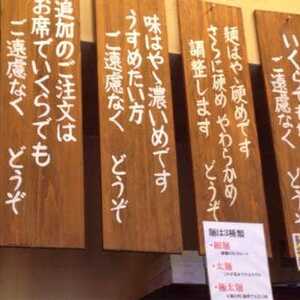 いくら
ご遠慮なく
麺はやゝ硬めです
さらに硬め やわらかめ
調整します どうぞ
味はやゝ濃いめです
うすめたい方
ご遠慮なく どうぞ
追加のご注文は
お席でいくらでも
ご遠慮なく どうぞ
麺は3種類
・細麺
・太麺
・極太麺